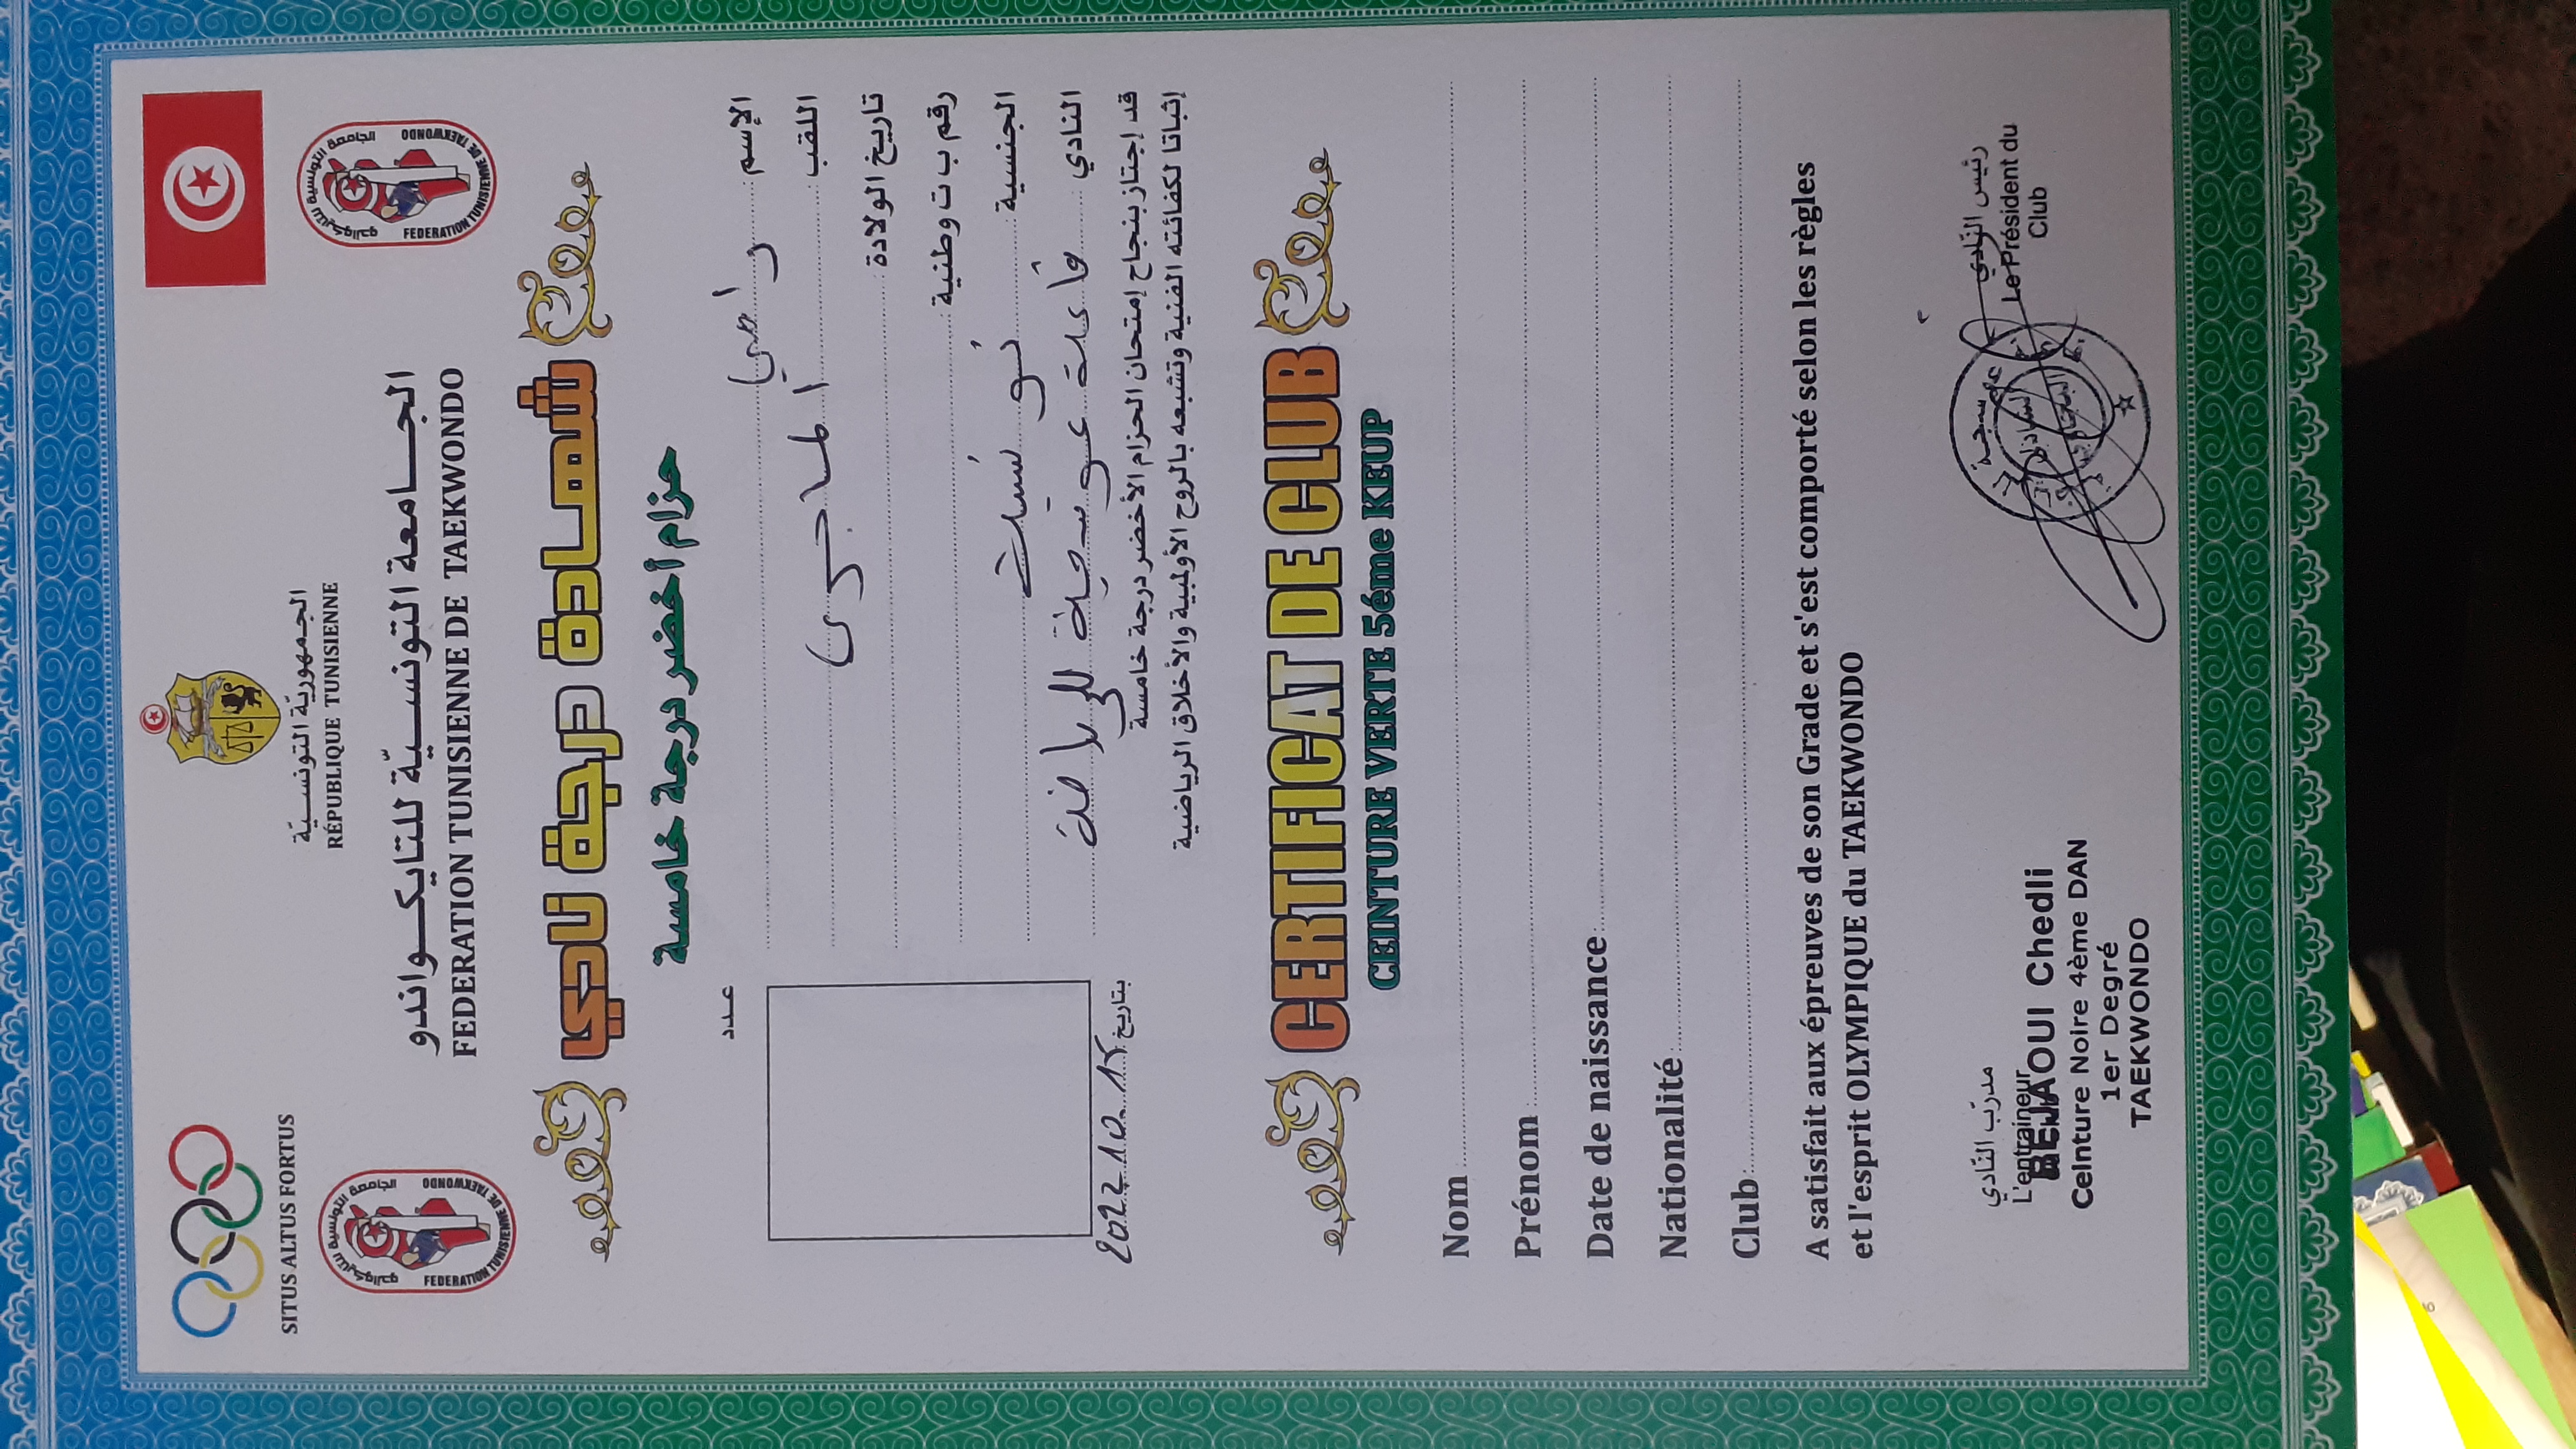 الجمهورية التونسيّة
RÉPUBLIQUE TUNISIENNE
SITUS ALTUS FORTUS
الجامعة التونسيّة للتايكواندو
FEDERATION TUNISIENNE DE TAEKWONDO
الجامعة التونسية للتايكواندو
FEDERATION TUNISIENNE DE TAEKWONDO
الجامعة التونسية للتايكواندو
FEDERATION TUNISIENNE DE TAEKWONDO
شهادة درجة نادي
حزام أخضر درجة خامسة
عدد
الإسم: راضي
اللقب: الماجري
تاريخ الولادة:
رقم ب ت وطنية:
الجنسية: تونسية
النادي: للرياضة
قد إجتاز بنجاح إمتحان الحزام الأخضر درجة خامسة
إثباتا لكفائته الفنية وتشبعه بالروح الأولمبية والأخلاق الرياضية
بتاريخ 2022.10.15
CERTIFICAT DE CLUB
CEINTURE VERTE 5éme KEUP
Nom
Prénom :
Date de naissance:
Nationalité:
Club:
A satisfait aux épreuves de son Grade et s'est comporté selon les règles
et l'esprit OLYMPIQUE du TAEKWONDO
مدرّب النّادي
L'entraineur
BEJAOUI Chedli
CeInture Noire 4ème DAN
1er Degré
TAEKWONDO
رئيس النّادي
Le Président du
Club